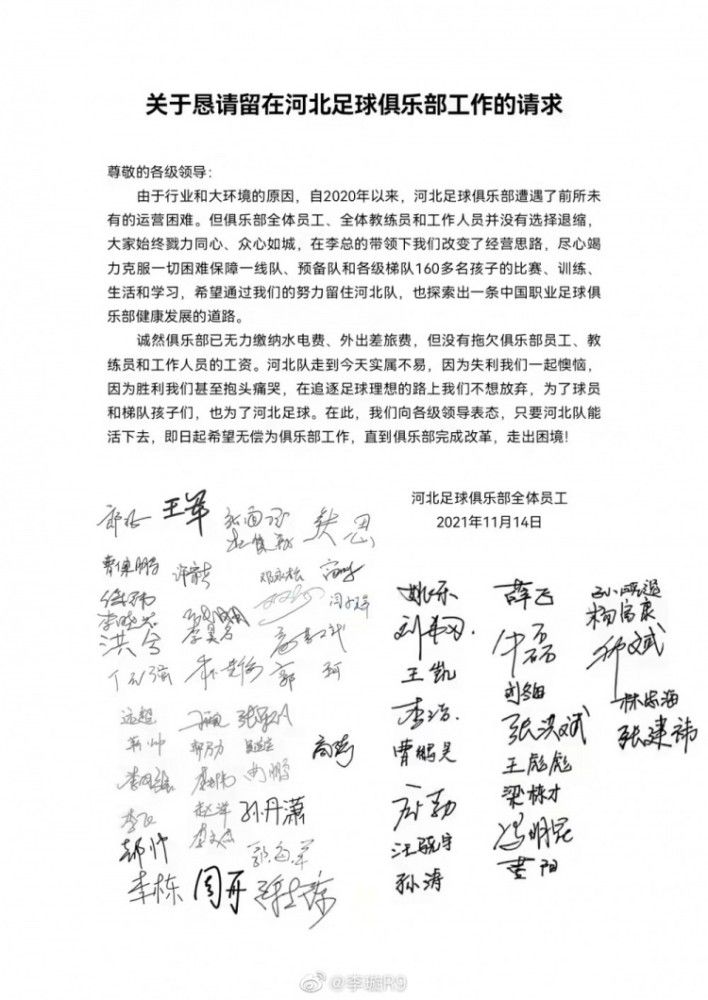 关于恳请留在河北足球俱乐部工作的请求
尊敬的各级领导：
由于行业和大环境的原因，自2020年以来，河北足球俱乐部遭遇了前所未
有的运营困难。但俱乐部全体员工、全体教练员和工作人员并没有选择退缩，
大家始终戮力同心、众心如城，在李总的带领下我们改变了经营思路，尽心竭
力克服一切困难保障一线队、预备队和各级梯队160多名孩子的比赛、训练、
生活和学习，希望通过我们的努力留住河北队，也探索出一条中国职业足球俱
乐部健康发展的道路。
诚然俱乐部已无力缴纳水电费、外出差旅费，但没有拖欠俱乐部员工、教
练员和工作人员的工资。河北队走到今天实属不易，因为失利我们一起懊恼，
因为胜利我们甚至抱头痛哭，在追逐足球理想的路上我们不想放弃，为了球员
和梯队孩子们，也为了河北足球。在此，我们向各级领导表态，只要河北队能
活下去，即日起希望无偿为俱乐部工作，直到俱乐部完成改革，走出困境！
河北足球俱乐部全体员工
2021年11月14日
王军
曹鹏
洪兮
郭珂
远超
高嵩
孙丹潇
李栋 周开
姚乐 薛飞
杨富康
王凯
李浩 张洪斌
曹鹏昊 王彪彪
梁栋才
汪骁宇 冯明昆
孙涛 黄阳
林忠海
张建祎
@李璇R9